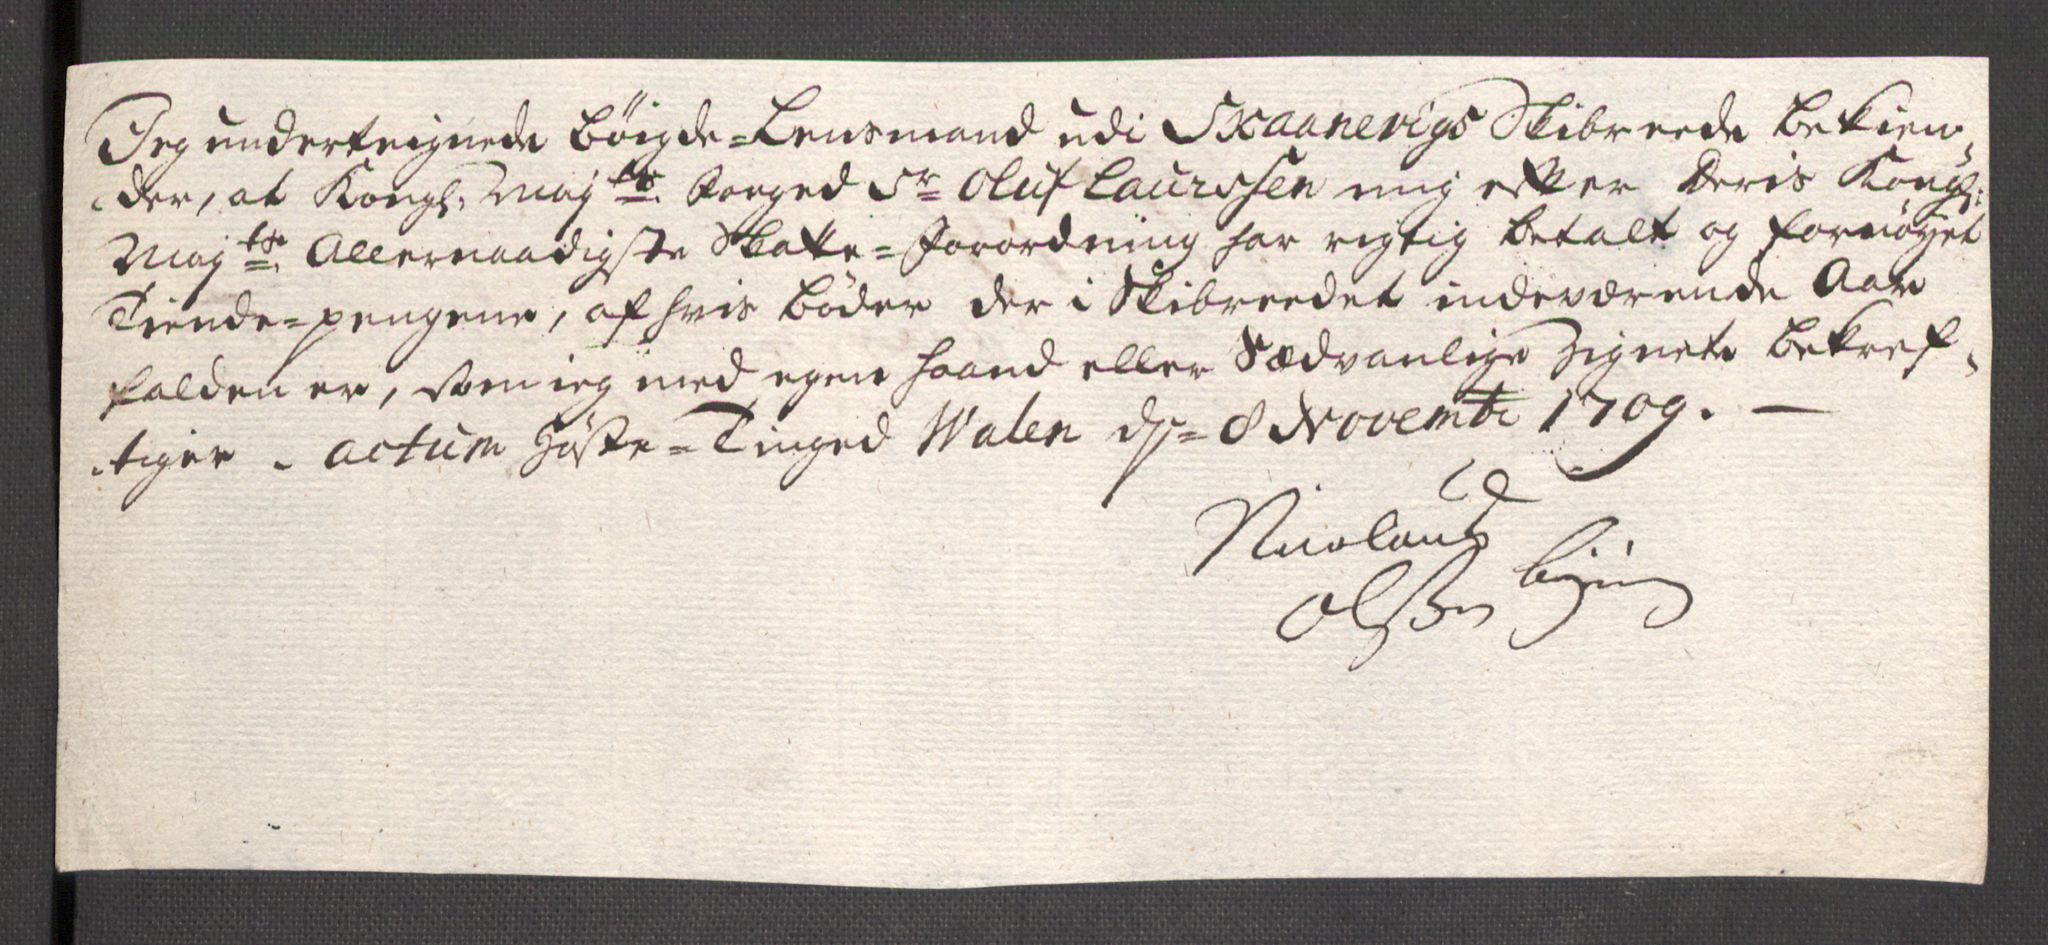 Jeg underteignede Bøigde-Lensmand udi Skaanevigs Skibreede bekien-
der, at Kongl: Maj:ts Foeged Sr Oluf Laurssen mig efter Deris Kongl:
Maj:ts Allernaadigste Skatte-Forordning har rigtig betalt og fornøyet
Tiende-pengene, af hvis bøder der i Skibreedet indeværende Aar
falden er, som ieg med egen haand eller Sædvanlige Zignete bekref-
tiger. Actum Høste-Tinged Walen d: 8 Novembr 1709.
Nicolaus
Olssen